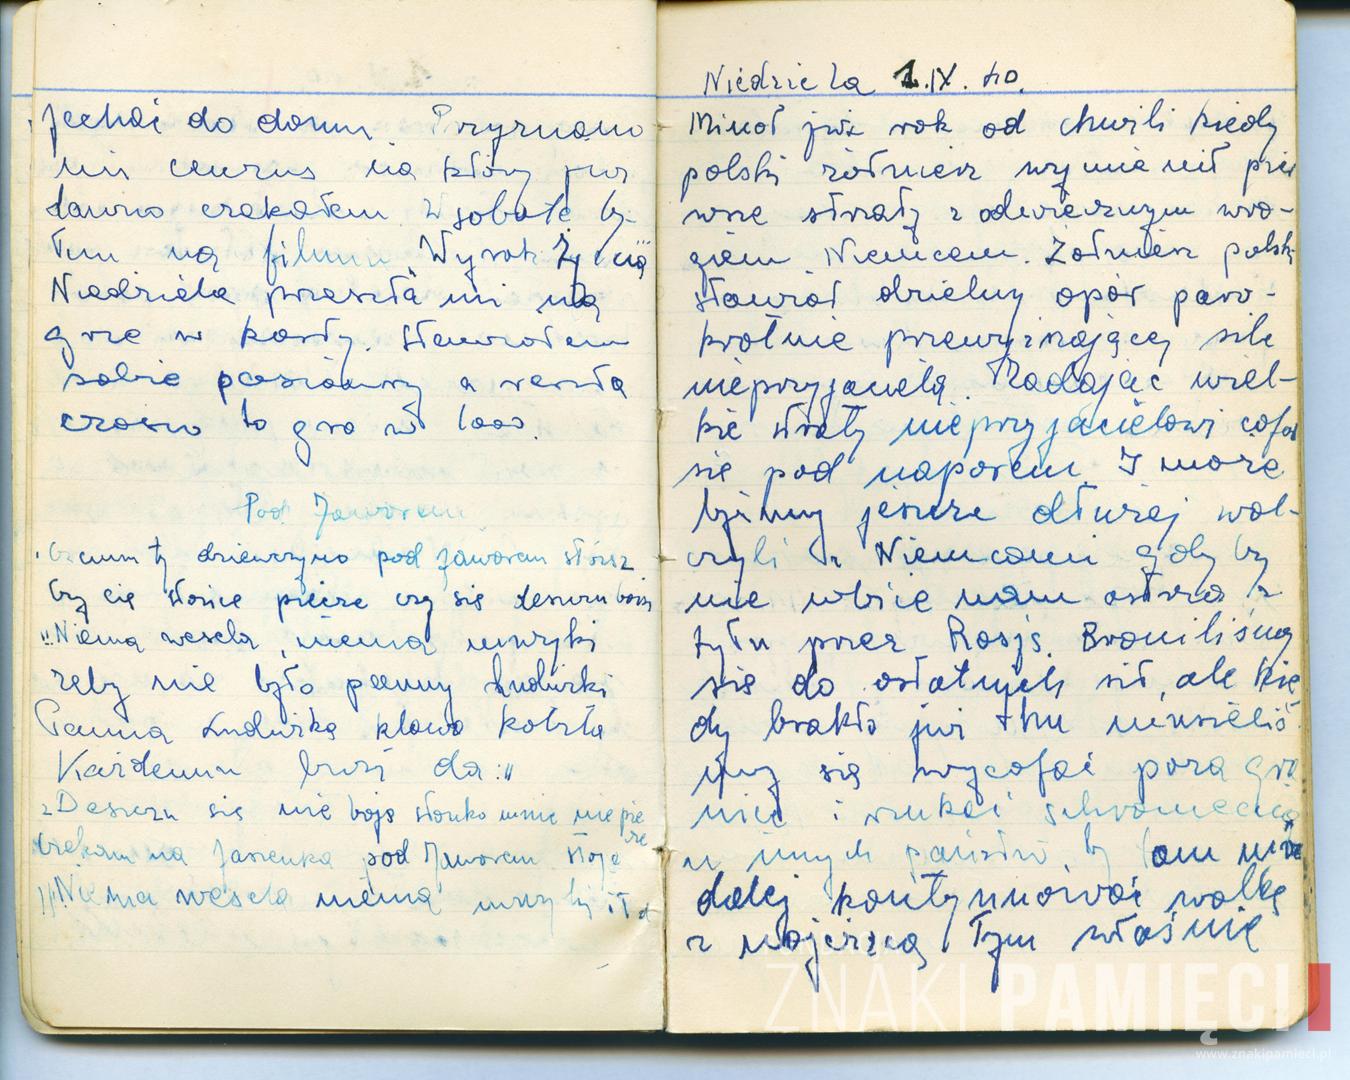 Jechać do domu. Przyznano
mi cenzus na który już
dawno czekałem W sobotę by-
łem na filmie "Wyrok Życia"
Niedziela przeszła mi na
grze w karty. Stawiałem
sobie pasjansy a resztą
czasu to gra w 1000.
Pod Jaworem
czemu ty dziewczyno pod jaworem stoisz
czy cię słońce piecze czy się deszczu boisz
"Niema wesela, niema muzyki
żeby nie było panny Ludwiki
Panna Ludwika klawa kobita
Każdemu buzi da:"
2 Deszczu się nie boję słonko mnie nie piecze
czekam na Jasieńka pod Jaworem stoję
"Niema wesela niema muzyki itd
Niedziela 1.IX.40.
Minął już rok od chwili kiedy
polski żołnierz wymienił pier
wsze strzały z odwiecznym wro-
giem Niemcem. Żołnierz polski
stawiał dzielny opór paro-
krotnie przewyższającej sile
nieprzyjaciela. Zadając wiel-
kie straty nieprzyjacielowi cofał
się pod naporem. I może
byśmy jeszcze dłużej wal-
czyli z Niemcami gdyby
nie wbicie nam ostrza z
tyłu przez Rosję. Broniliśmy
się do ostatnych sił, ale kie
dy brakło już tchu musieliś
my się wycofać poza gra
nice i szukać schronienia
w innych państw, by tam móc
dalej kontynuować walkę
z najeźdźcą Tym właśnie
ZNAKI PAMIĘCI
www.znakipamieci.pl